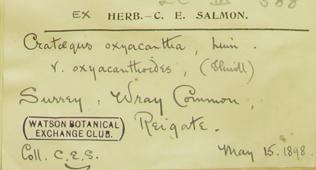 EX HERB.–C. E. SALMON.
Cratægus oxyacantha, Linn.
v. oxyacanthoides, (Thuill)
Surrey. Wray Common,
Reigate.
WATSON BOTANICAL
EXCHANGE CLUB.
Coll. C.E.S. May 15. 1898.